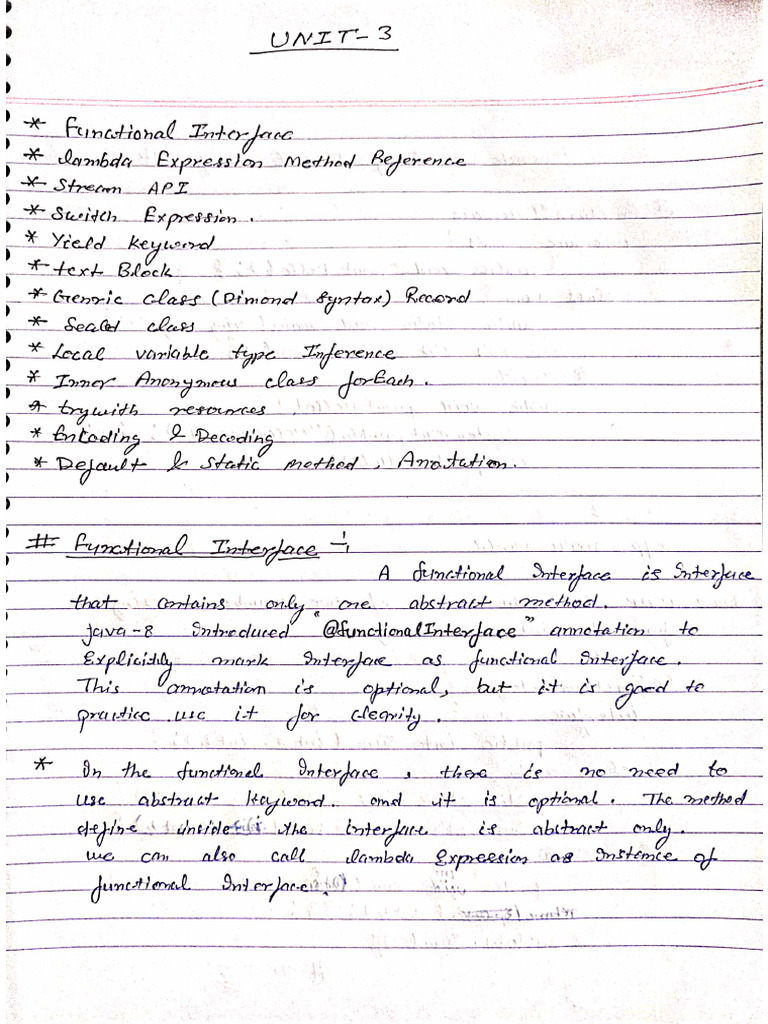 UNIT-3
* Functional Interface
* lambda Expression Method Reference
* Stream API
* Switch Expression.
* Yield Keyword
* text Block
* Genric class (Dimond Syntax) Record
* Sealed class
* Local variable type Inference
* Inner Anonymous class forEach.
* try with resources
* Encoding & Decoding
* Default & static method, Anotation.
# Functional Interface :-
A functional Interface is Interface
that contains only one abstract method.
java-8 Introduced "@functionalInterface" annotation to
Explicitly mark Interface as functional Interface.
This annotation is optional, but it is good to
practice use it for clearity.
* In the functional Interface, there is no need to
use abstract Keyword. and it is optional. The method
define inside the interface is abstract only.
we can also call lambda Expression as Instance of
functional Interface.